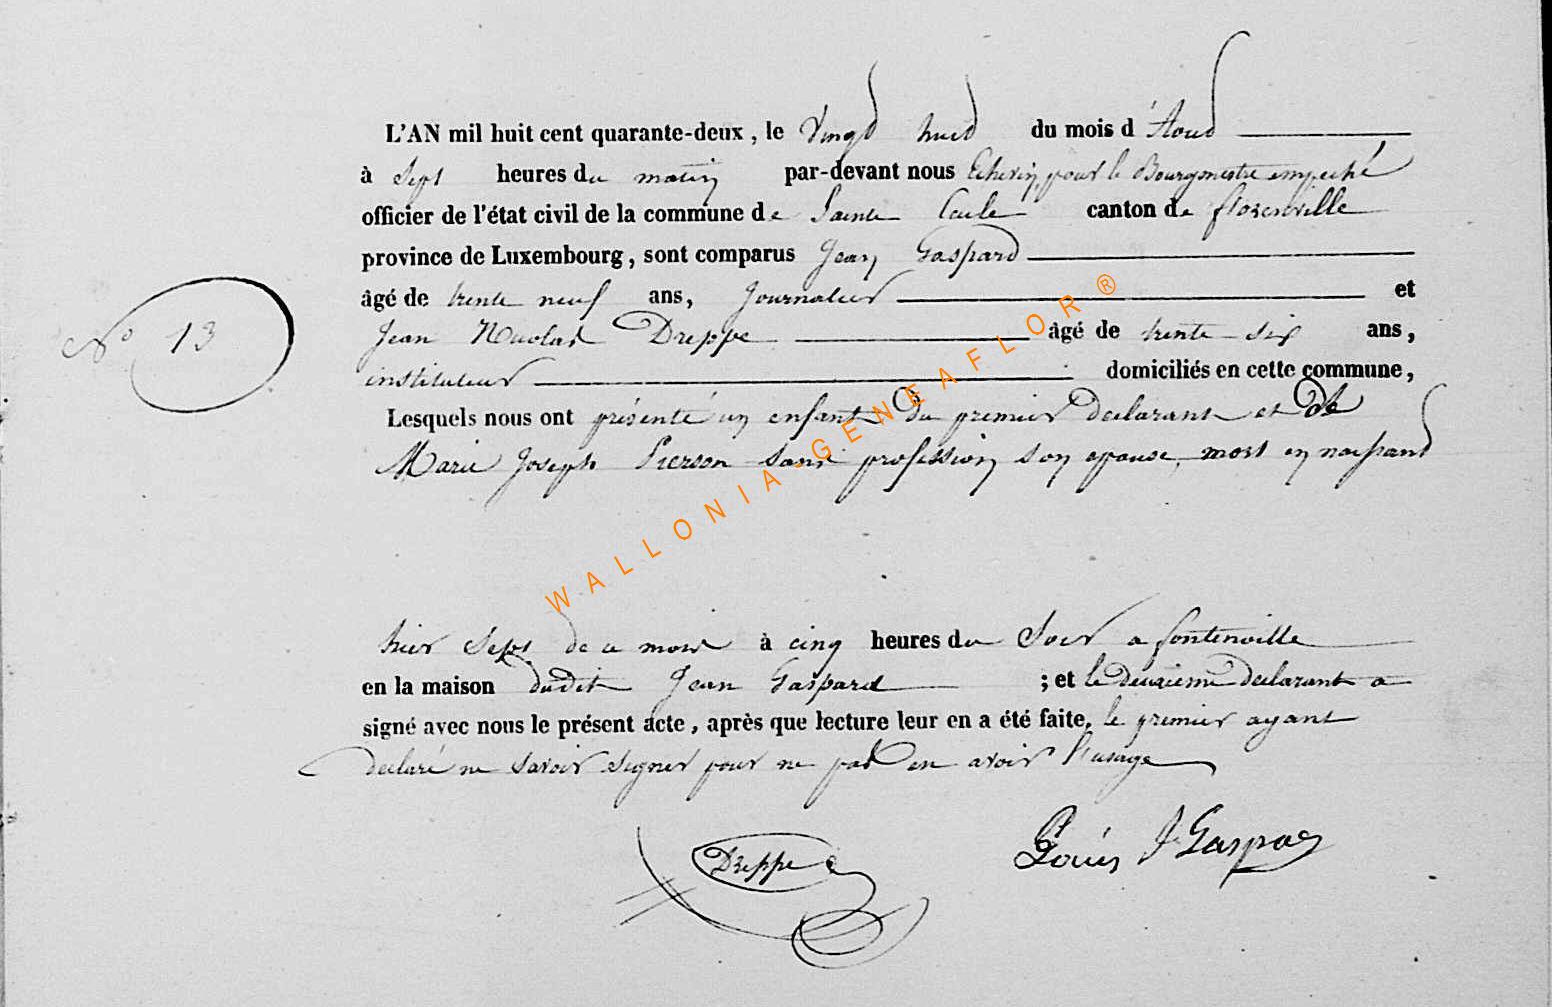 L'AN mil huit cent quarante-deux, le Vingt huit du mois d'Aout
à Sept heures du matin par-devant nous Echevin, pour le Bourgmestre empeché
officier de l'état civil de la commune de Sainte Cecile canton de florenville
province de Luxembourg, sont comparus Jean Gaspard
âgé de trente neuf ans, Journalier et
N° 13
Jean Nicolas Dreppe âgé de trente six ans,
instituteur domiciliés en cette commune,
Lesquels nous ont présenté un enfant du premier declarant et de
Marie Joseph Pierson sans profession son epouse, mort en naissant
hier Sept de ce mois à cinq heures du Soir a fontenoille
en la maison dudit Jean Gaspard ; et le deuxieme declarant a
signé avec nous le présent acte, après que lecture leur en a été faite, le premier ayant
declaré ne Savoir Signer pour ne pas en avoir l'usage
Dreppe
Gaspard
WALLONIA-GENEAFLOR®